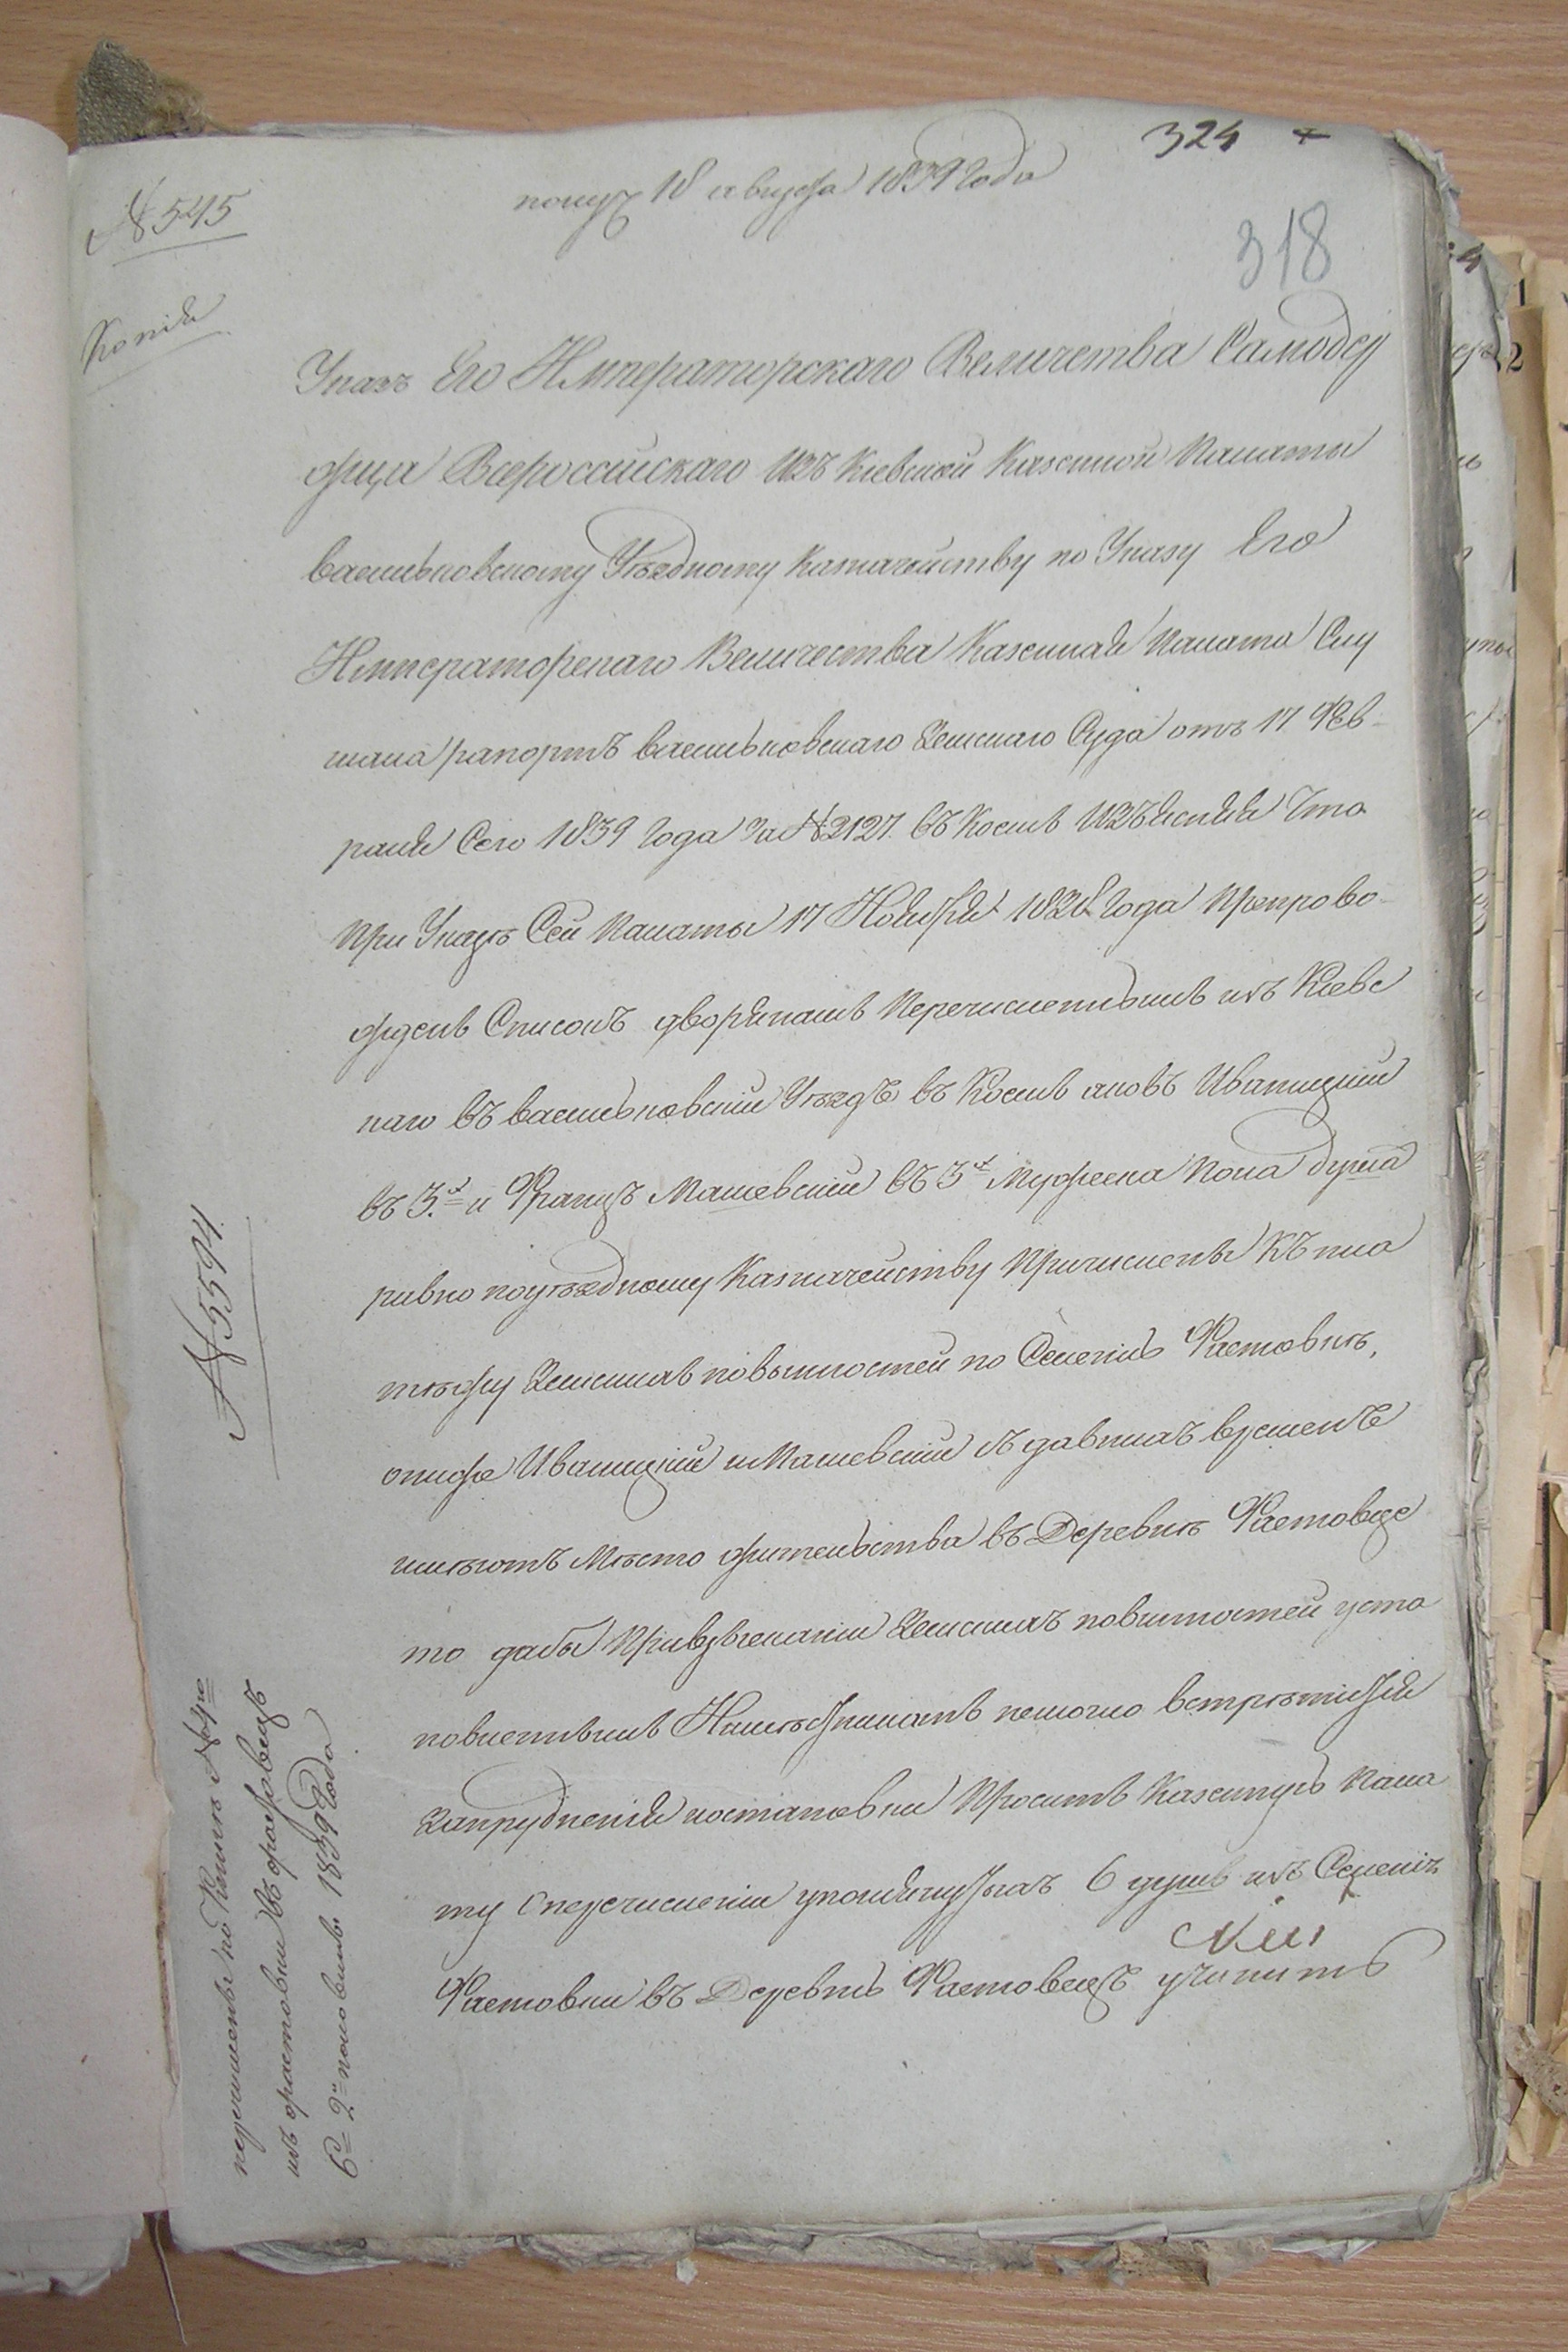 324
318
№ 545
Копія
получ 18 августа 1839 года
Указъ Его Императорскаго Величества Самодер
жца Всероссійскаго изъ Кіевской Казенной Палаты
васильковскому Уѣздному Казначейству по Указу Его
Императорскаго Величества Казенная Палата Слу
шала рапортъ васильковскаго Земскаго Суда отъ 17 Фев-
раля Сего 1839 года за № 2127. въ коемъ изъясняя что
при Указѣ Сей Палаты 17 Ноября 1828 года препрово-
жденъ Списокъ дворянамъ перечисленнымъ изъ Кіевс
каго въ васильковскій Уѣздъ въ коемъ Ивáницкій
въ 3.х и Францъ Малевскій въ 3х Мужеска пола душа
равно по уѣздному Казначейству причислены къ пла
тежу Земскихъ повинностей по Селенію Фастовкѣ,
они же Иваницкій и Малевскій съ давнихъ временъ
имѣютъ Мѣсто жительства въ Деревнѣ Фастовце
то дабы при взысканіи Земскихъ повинностей уста
новленнымъ немогло встрѣтиться
затрудненія и остановки проситъ Казенную Пала
ту о перечисленіи упомянутыхъ 6 душъ изъ Селенія
Фастовки въ Деревню Фастовецъ учинить
№ 5594
перечислены по Книгѣ
изъ фастовки въ фастовецъ
съ 2й половины 1839 года